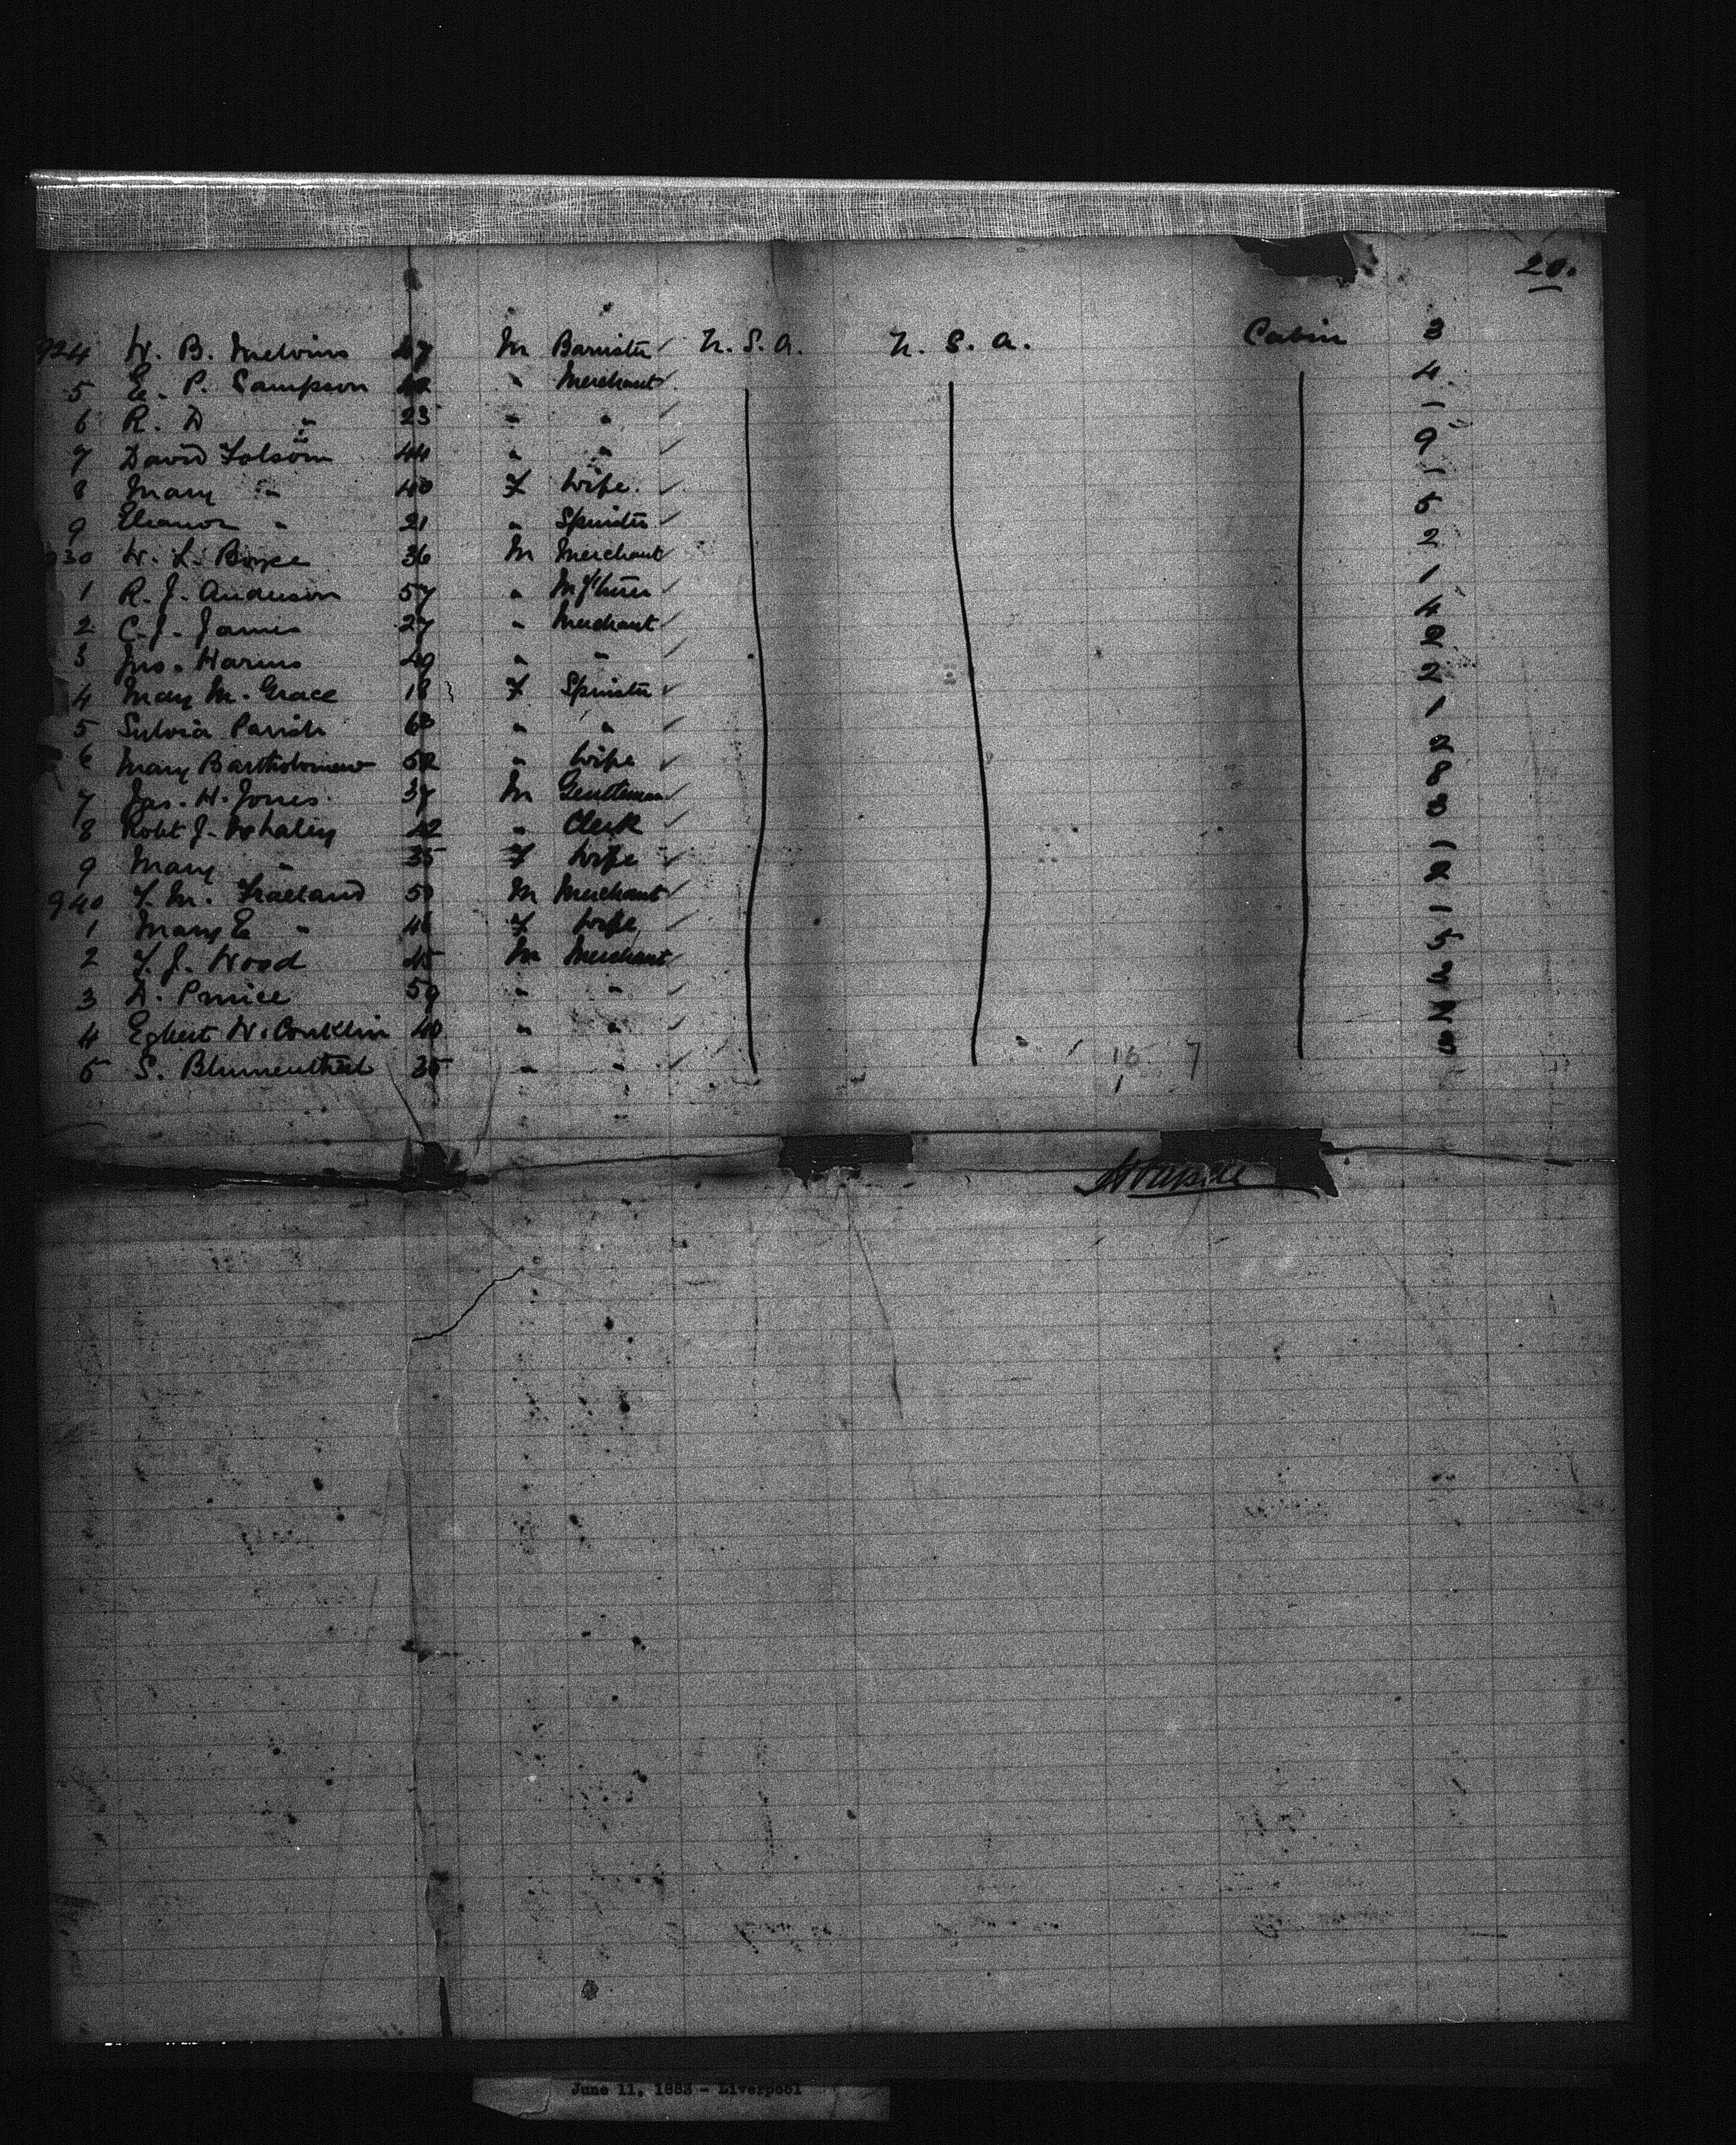 20.
924 W. B. Melvins 27 M Barrister U.S.A. U.S.A. Cabin 3
5 E. P. Sampson " Merchant 4
6 R. D " 23 " " –
7 David Folsom 44 " " 9
8 Mary " 40 F Wife –
9 Eleanor " 21 " Spinster 5
930 W. L. Boyce 36 M Merchant 2
1 R. J. Anderson 57 " 1
2 C. J. James 27 " Merchant 4
3 Jno. Harms 49 " " 2
4 Mary M. Grace 18 F Spinster 2
5 Sylvia Parish 63 " " 1
6 Mary Bartholomew 52 " Wife 2
7 Jas. H. Jones 37 M Gentleman 8
8 Robt J. Whaley 42 " Clerk 3
9 Mary " 35 F Wife –
940 F. M. 50 M Merchant 2
1 Mary E " 46 F Wife –
2 F. J. Wood 45 M Merchant 5
3 D. Prince 59 " "
4 Egbert W. Conklin 40 " "
5 S. Blumenthal 35 " " 3
16 7
1
June 11, 1883 - Liverpool